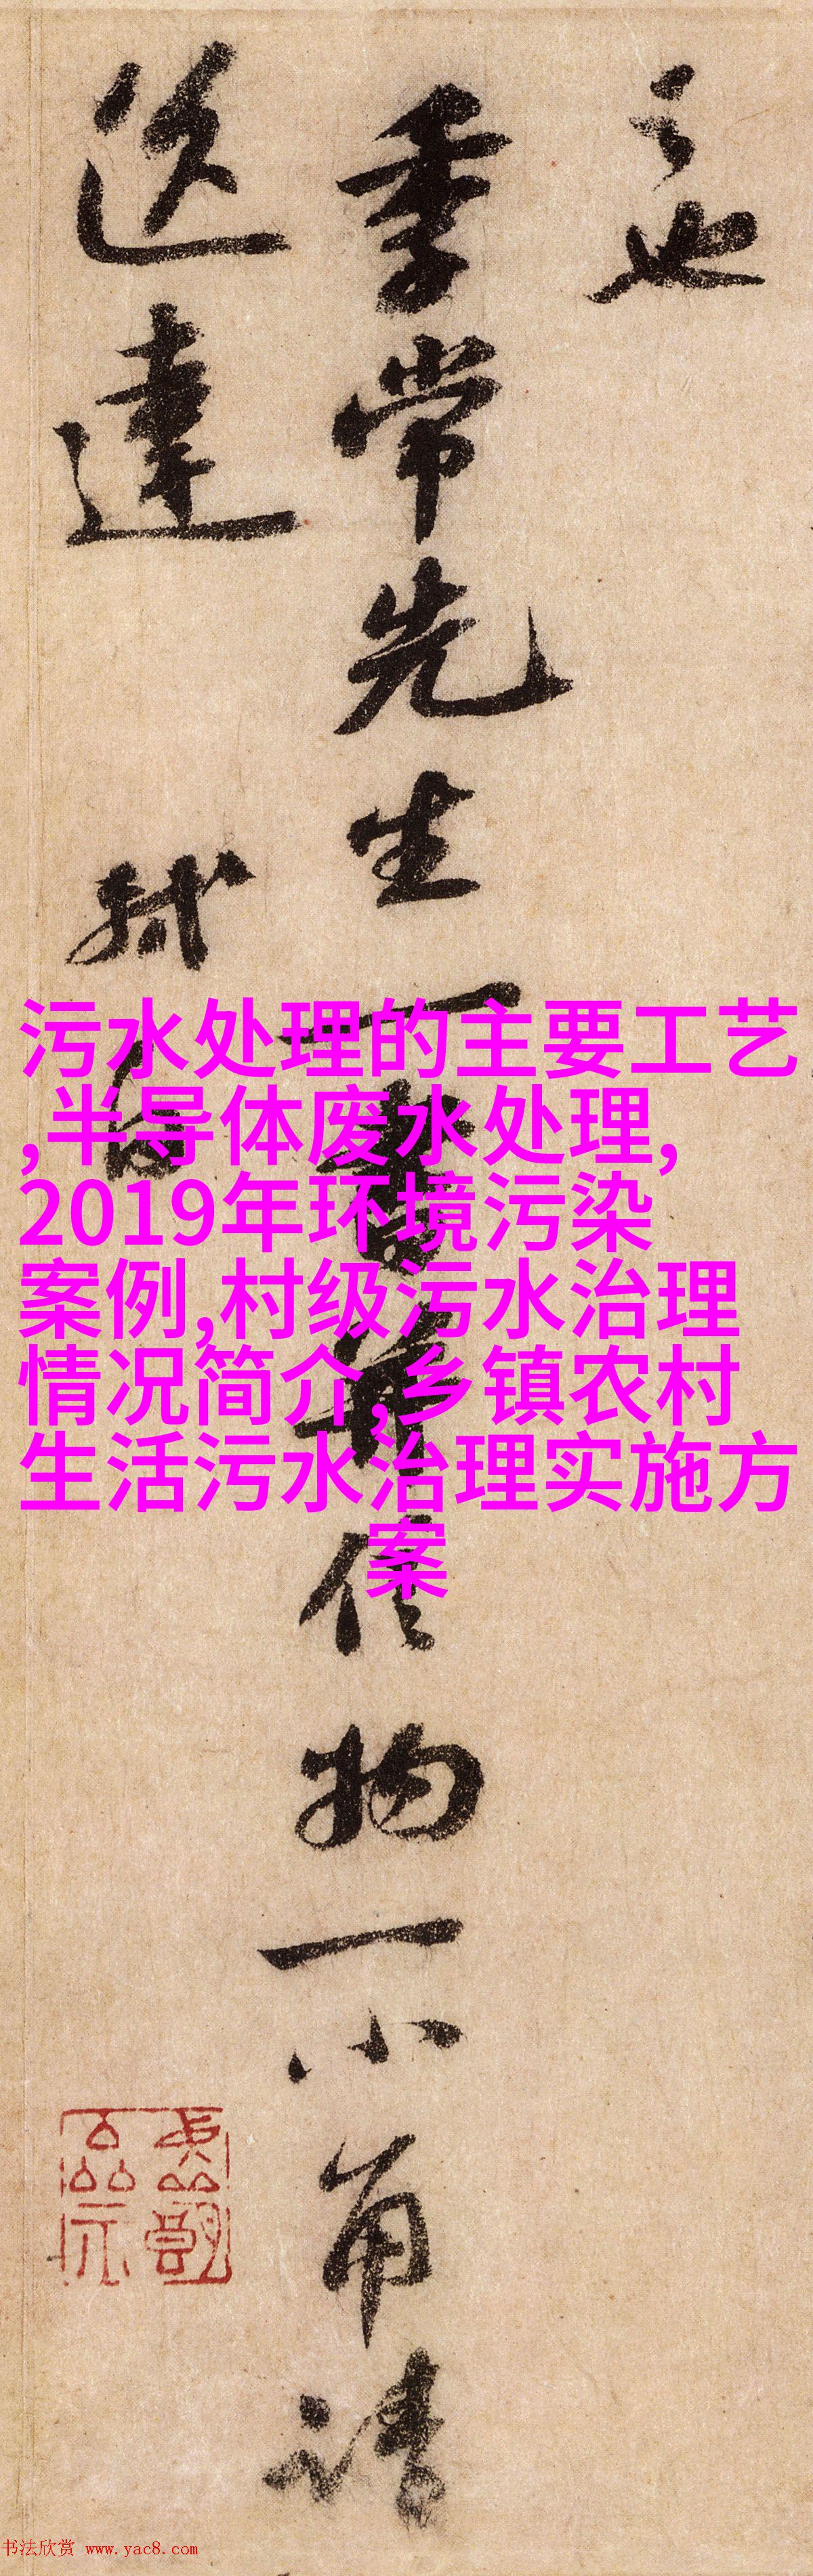 之也
季常先生一書并信物一小角請
送達 軾白
污水处理的主要工艺
,半导体废水处理,
2019年环境污染
案例,村级污水治理
情况简介,乡镇农村
生活污水治理实施方
案
书法欣赏 www.yac8.com